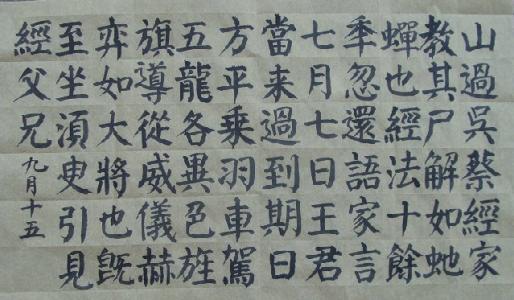 山過吳蔡經家
教其尸解如虵
蟬也經法十餘
秊忽還語家言
七月七日王君
當来過到期日
方平乗羽車駕
五龍各異色旌
旗導從威儀赫
弈如大將也既
至坐湏臾引見
經父兄
九月十五